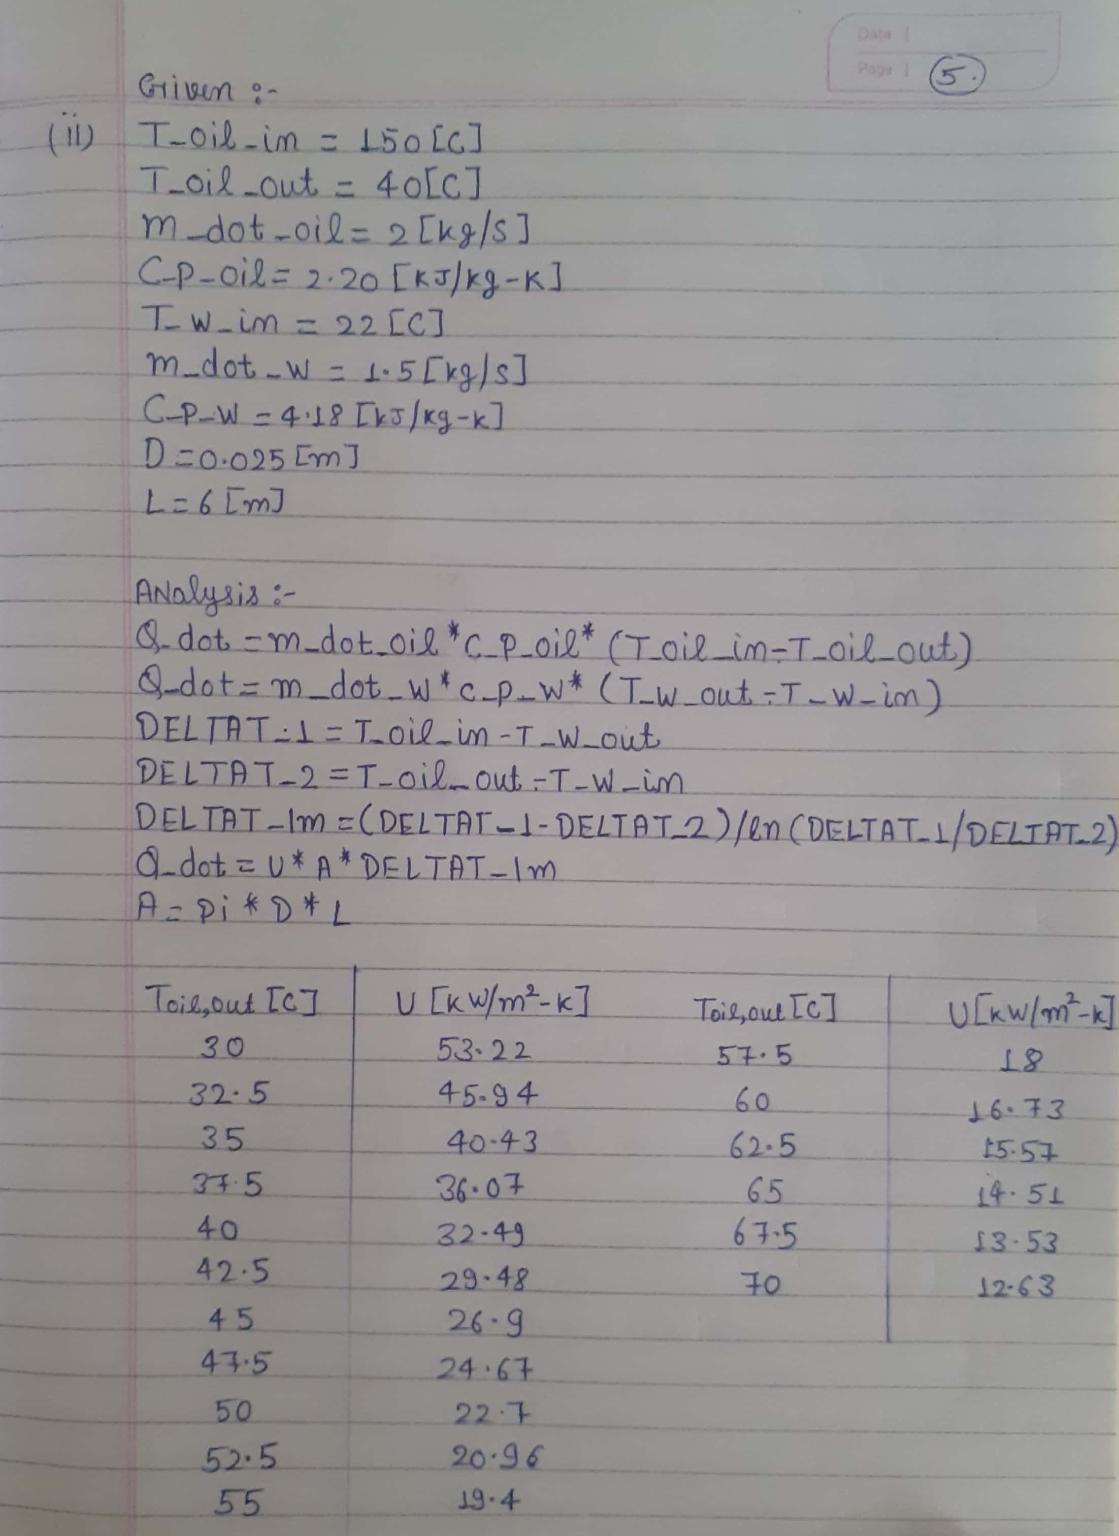 Date |
Page | 5.
Given :-
(ii) T_oil_in = 150 [C]
T_oil_out = 40[C]
m_dot_oil = 2 [kg/s]
C_P_oil = 2.20 [KJ/kg-K]
T_W_in = 22 [C]
m_dot_W = 1.5 [kg/s]
C_P_W = 4.18 [KJ/kg-K]
D = 0.025 [m]
L = 6 [m]
ANalysis :-
Q_dot = m_dot_oil * C_P_oil * (T_oil_in - T_oil_out)
Q_dot = m_dot_W * C_P_W * (T_W_out - T_W_in)
DELTAT_1 = T_oil_in - T_W_out
DELTAT_2 = T_oil_out - T_W_in
DELTAT_1m = (DELTAT_1 - DELTAT_2)/ln(DELTAT_1/DELTAT_2)
Q_dot = U * A * DELTAT_1m
A = Pi * D * L
Toil,out [C] U [KW/m²-K] Toil,out [C] U[KW/m²-K]
30 53.22 57.5 18
32.5 45.94 60 16.73
35 40.43 62.5 15.57
37.5 36.07 65 14.51
40 32.49 67.5 13.53
42.5 29.48 70 12.63
45 26.9
47.5 24.67
50 22.7
52.5 20.96
55 19.4